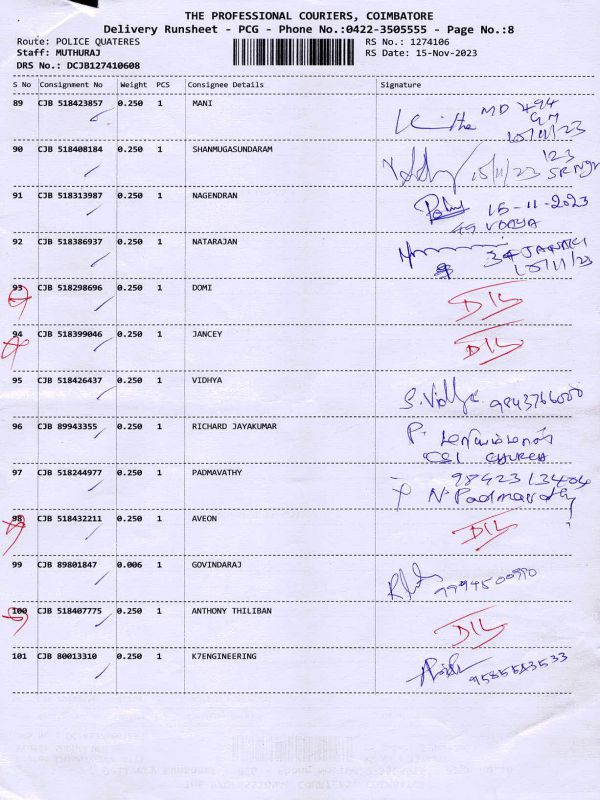 THE PROFESSIONAL COURIERS, COIMBATORE
Delivery Runsheet - PCG - Phone No.:0422-3505555 - Page No.:8
Route: POLICE QUATERES RS No.: 1274106
Staff: MUTHURAJ RS Date: 15-Nov-2023
DRS No.: DCJB127410608
S No Consignment No Weight PCS Consignee Details Signature
89 CJB 518423857 0.250 1 MANI MD 494
GM
15/11/23
90 CJB 518408184 0.250 1 SHANMUGASUNDARAM 15/11/23 123
91 CJB 518313987 0.250 1 NAGENDRAN 15-11-2023
92 CJB 518386937 0.250 1 NATARAJAN 34 JANAKI
15/11/23
93 CJB 518298696 0.250 1 DOMI D/L
94 CJB 518399046 0.250 1 JANCEY D/L
95 CJB 518426437 0.250 1 VIDHYA S. Vidhya
96 CJB 89943355 0.250 1 RICHARD JAYAKUMAR P.
CSI CHURCH
97 CJB 518244977 0.250 1 PADMAVATHY 9842313404
N. Padmavathy
98 CJB 518432211 0.250 1 AVEON D/L
99 CJB 89801847 0.006 1 GOVINDARAJ
100 CJB 518407775 0.250 1 ANTHONY THILIBAN D/L
101 CJB 80013310 0.250 1 K7ENGINEERING